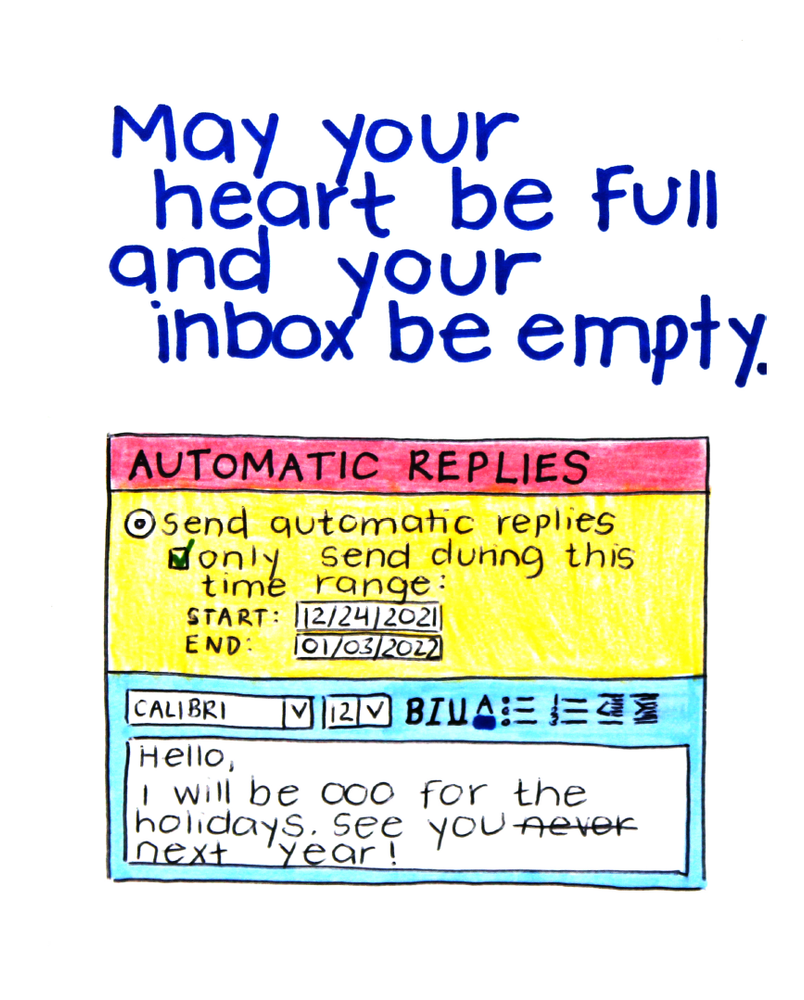 May your
heart be full
and your
inbox be empty.
AUTOMATIC REPLIES
send automatic replies
only send during this
time range:
START: 12/24/2021
END: 01/03/2022
CALIBRI 12 B I U A
Hello,
I will be OOO for the
holidays. See you never
next year!